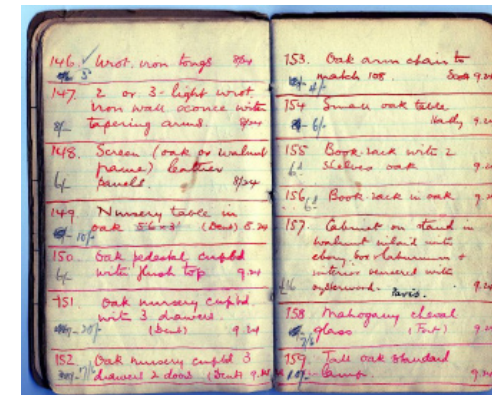 146. ✓ Wrot. iron tongs 8/24
5
147. 2 or 3-light wrot.
iron wall sconce with
8/- tapering arms. 8/24
148. Screen (oak or walnut
frame) leather
6/- panels. 8/24
149. Nursery table in
10/- oak 5'6 × 3' (Dent) 8.24
150. Oak pedestal cupbd
6/- with flush top 9.24
151. Oak nursery cupbd.
with 3 drawers.
20/- (Dent) 9.24
152. Oak nursery cupbd 3
7/6 drawers 2 doors (Dent) 9.24
153. Oak arm chair to
4/- match 108. Scott 9.24
154 Small oak table
6/- 9.24
155 Book-rack with 2
6d shelves oak 9.24
156 6d Book-rack in oak 9.24
157. Cabinet on stand in
walnut inlaid with
ebony box laburnum +
interior veneered with
£16 oysterwood. Paris. 9.24
158 Mahogany cheval
7/6 glass (Fort) 9.24
159. Tall oak standard
10/- lamp. 9.24